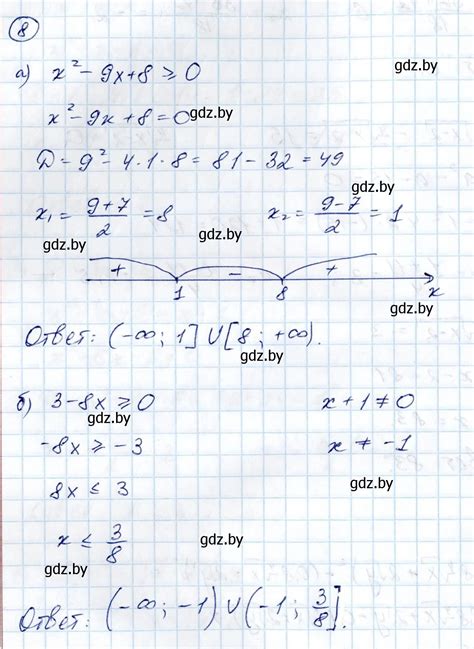 8
а) x² - 9x + 8 ≥ 0
gdz.by
x² - 9x + 8 = 0
gdz.by
D = 9² - 4·1·8 = 81 - 32 = 49
gdz.by
x₁ = (9+7)/2 = 8    x₂ = (9-7)/2 = 1
gdz.by    gdz.by
+ - +
1 8 x
gdz.by
Ответ: (-∞; 1] ∪ [8; +∞).
gdz.by
б) 3 - 8x ≥ 0    x + 1 ≠ 0
gdz.by
-8x ≥ -3    x ≠ -1
8x ≤ 3
gdz.by
x ≤ 3/8
gdz.by
gdz.by
Ответ: (-∞; -1) ∪ (-1; 3/8].
gdz.by